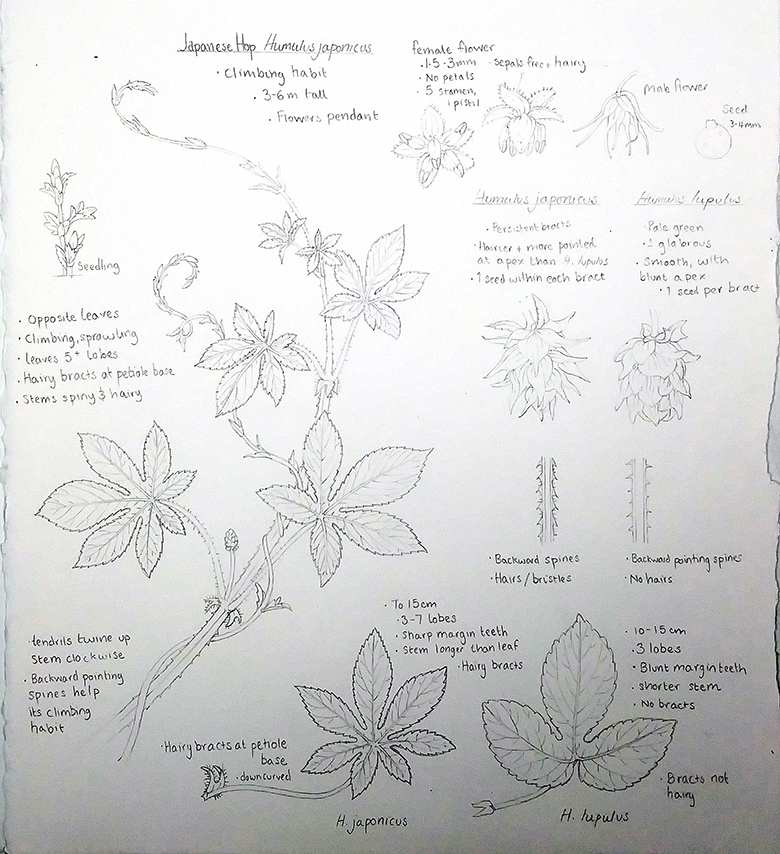 Japanese Hop Humulus japonicus
· Climbing habit
· 3-6m tall
· Flowers pendant
female flower
· 1.5-3mm
· No petals
· 5 stamen,
1 pistil
sepals free + hairy
male flower
Seed
3-4mm
Seedling
· Opposite leaves
· Climbing, sprawling
· leaves 5+ lobes
· Hairy bracts at petiole base
· Stems spiny & hairy
Humulus japonicus
· Persistent bracts
· Hairier + more pointed
at apex than H. lupulus
· 1 seed within each bract
Humulus lupulus
· Pale green
· glabrous
· Smooth, with
blunt apex
· 1 seed per bract
· Backward spines
· Hairs/bristles
· Backward pointing spines
· No hairs
· tendrils twine up
stem clockwise
· Backward pointing
spines help
its climbing
habit
· To 15cm
· 3-7 lobes
· Sharp margin teeth
· Stem longer than leaf
· Hairy bracts
· Hairy bracts at petiole
base
· downcurved
H. japonicus
· 10-15cm
· 3 lobes
· Blunt margin teeth
· shorter stem
· No bracts
· Bracts not
hairy
H. lupulus